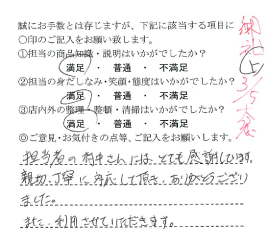 誠にお手数とは存じますが、下記に該当する項目に
○印のご記入をお願い致します。
①担当の商品知識・説明はいかがでしたか?
満足 ・ 普通 ・ 不満足
②担当の身だしなみ・笑顔・態度はいかがでしたか?
満足 ・ 普通 ・ 不満足
③店内外の整理・整頓・清掃はいかがでしたか?
満足 ・ 普通 ・ 不満足
◎ご意見・お気付きの点等、ご記入をお願いします。
担当者の村中さんには、とても感謝しています。
親切、丁寧に対応して頂き、ありがとうござい
ました。
また、利用させていただきます。
3/5